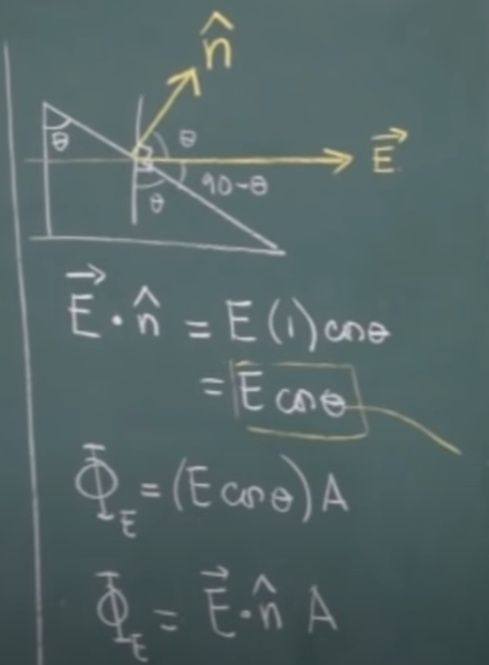 n̂
θ
θ
E⃗
90-θ
θ
E⃗ · n̂ = E(1) cosθ
= E cosθ
Φ_E = (E cosθ) A
Φ_E = E⃗ · n̂ A